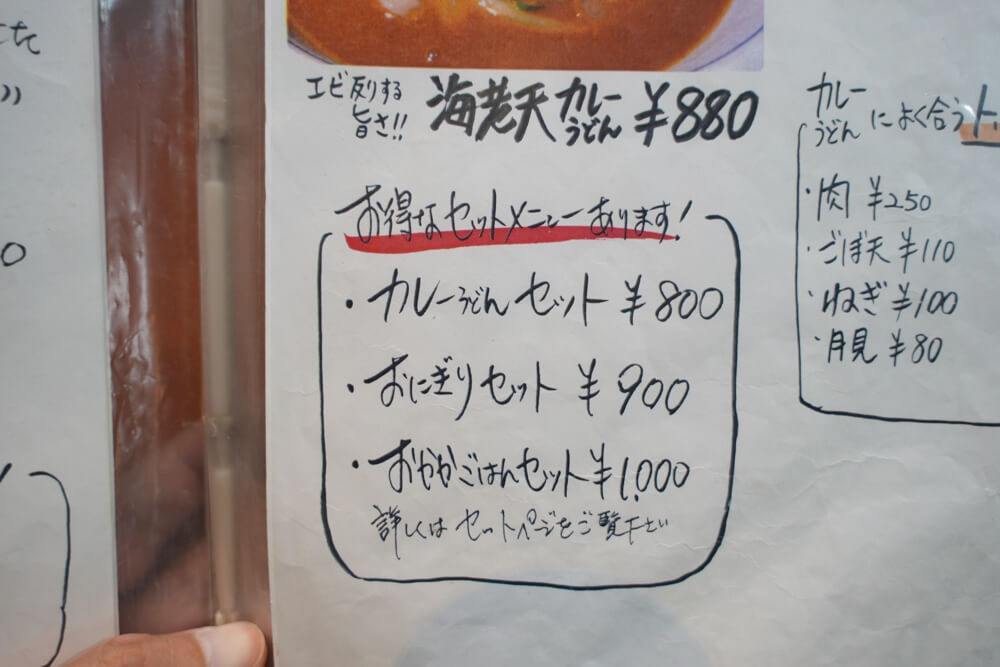 エビ反りする
旨さ!!
海老天カレーうどん ¥880
お得なセットメニューあります!
・カレーうどんセット ¥800
・おにぎりセット ¥900
・おかかごはんセット ¥1,000
詳しくはセットページをご覧下さい
カレーうどんによく合う
・肉 ¥250
・ごぼ天 ¥110
・ねぎ ¥100
・月見 ¥80